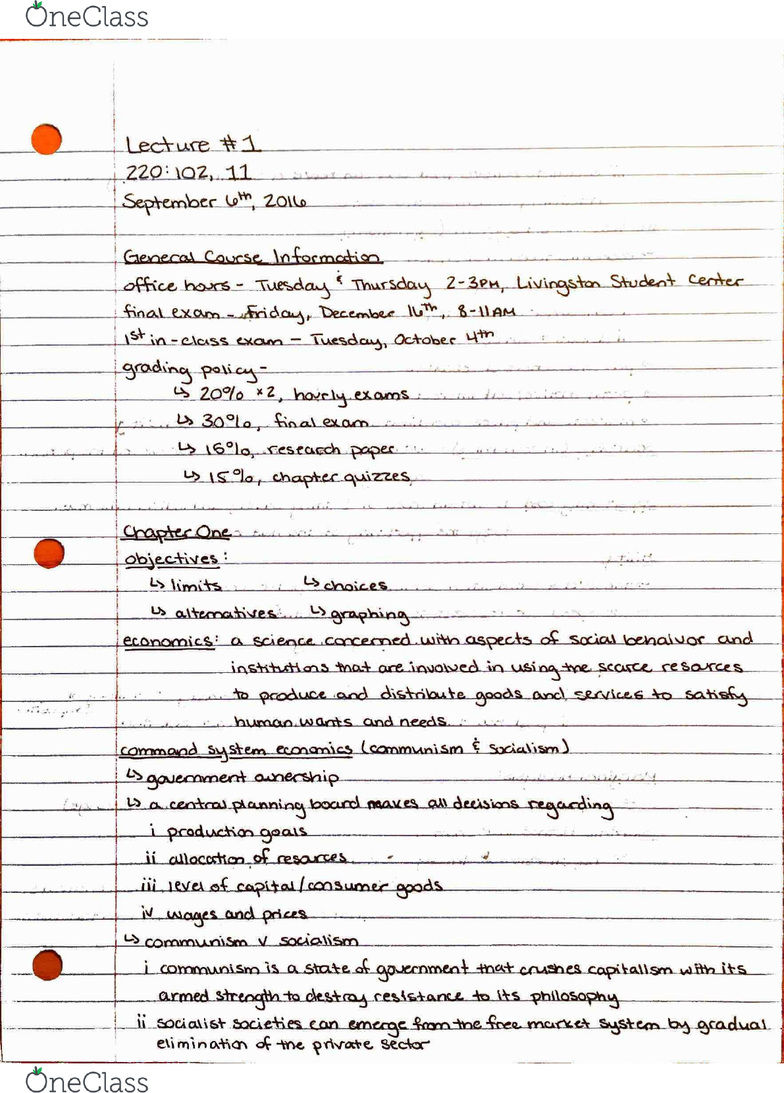 OneClass
Lecture #1
220:102, 11
September 6th, 2016
General Course Information
office hours - Tuesday & Thursday 2-3PM, Livingston Student Center
final exam - Friday, December 16th, 8-11AM
1st in-class exam - Tuesday, October 4th
grading policy -
↳ 20% x2, hourly exams
↳ 30%, final exam
↳ 15%, research paper
↳ 15%, chapter quizzes
Chapter One
objectives:
↳ limits ↳ choices
↳ alternatives ↳ graphing
economics: a science concerned with aspects of social behaivor and
institutions that are involved in using the scarce resources
to produce and distribute goods and services to satisfy
human wants and needs
command system economics (communism & socialism)
↳ government ownership
↳ a central planning board makes all decisions regarding
i production goals
ii allocation of resources
iii level of capital/consumer goods
iv wages and prices
↳ communism v socialism
i communism is a state of government that crushes capitalism with its
armed strength to destroy resistance to its philosophy
ii socialist societies can emerge from the free market system by gradual
elimination of the private sector
OneClass